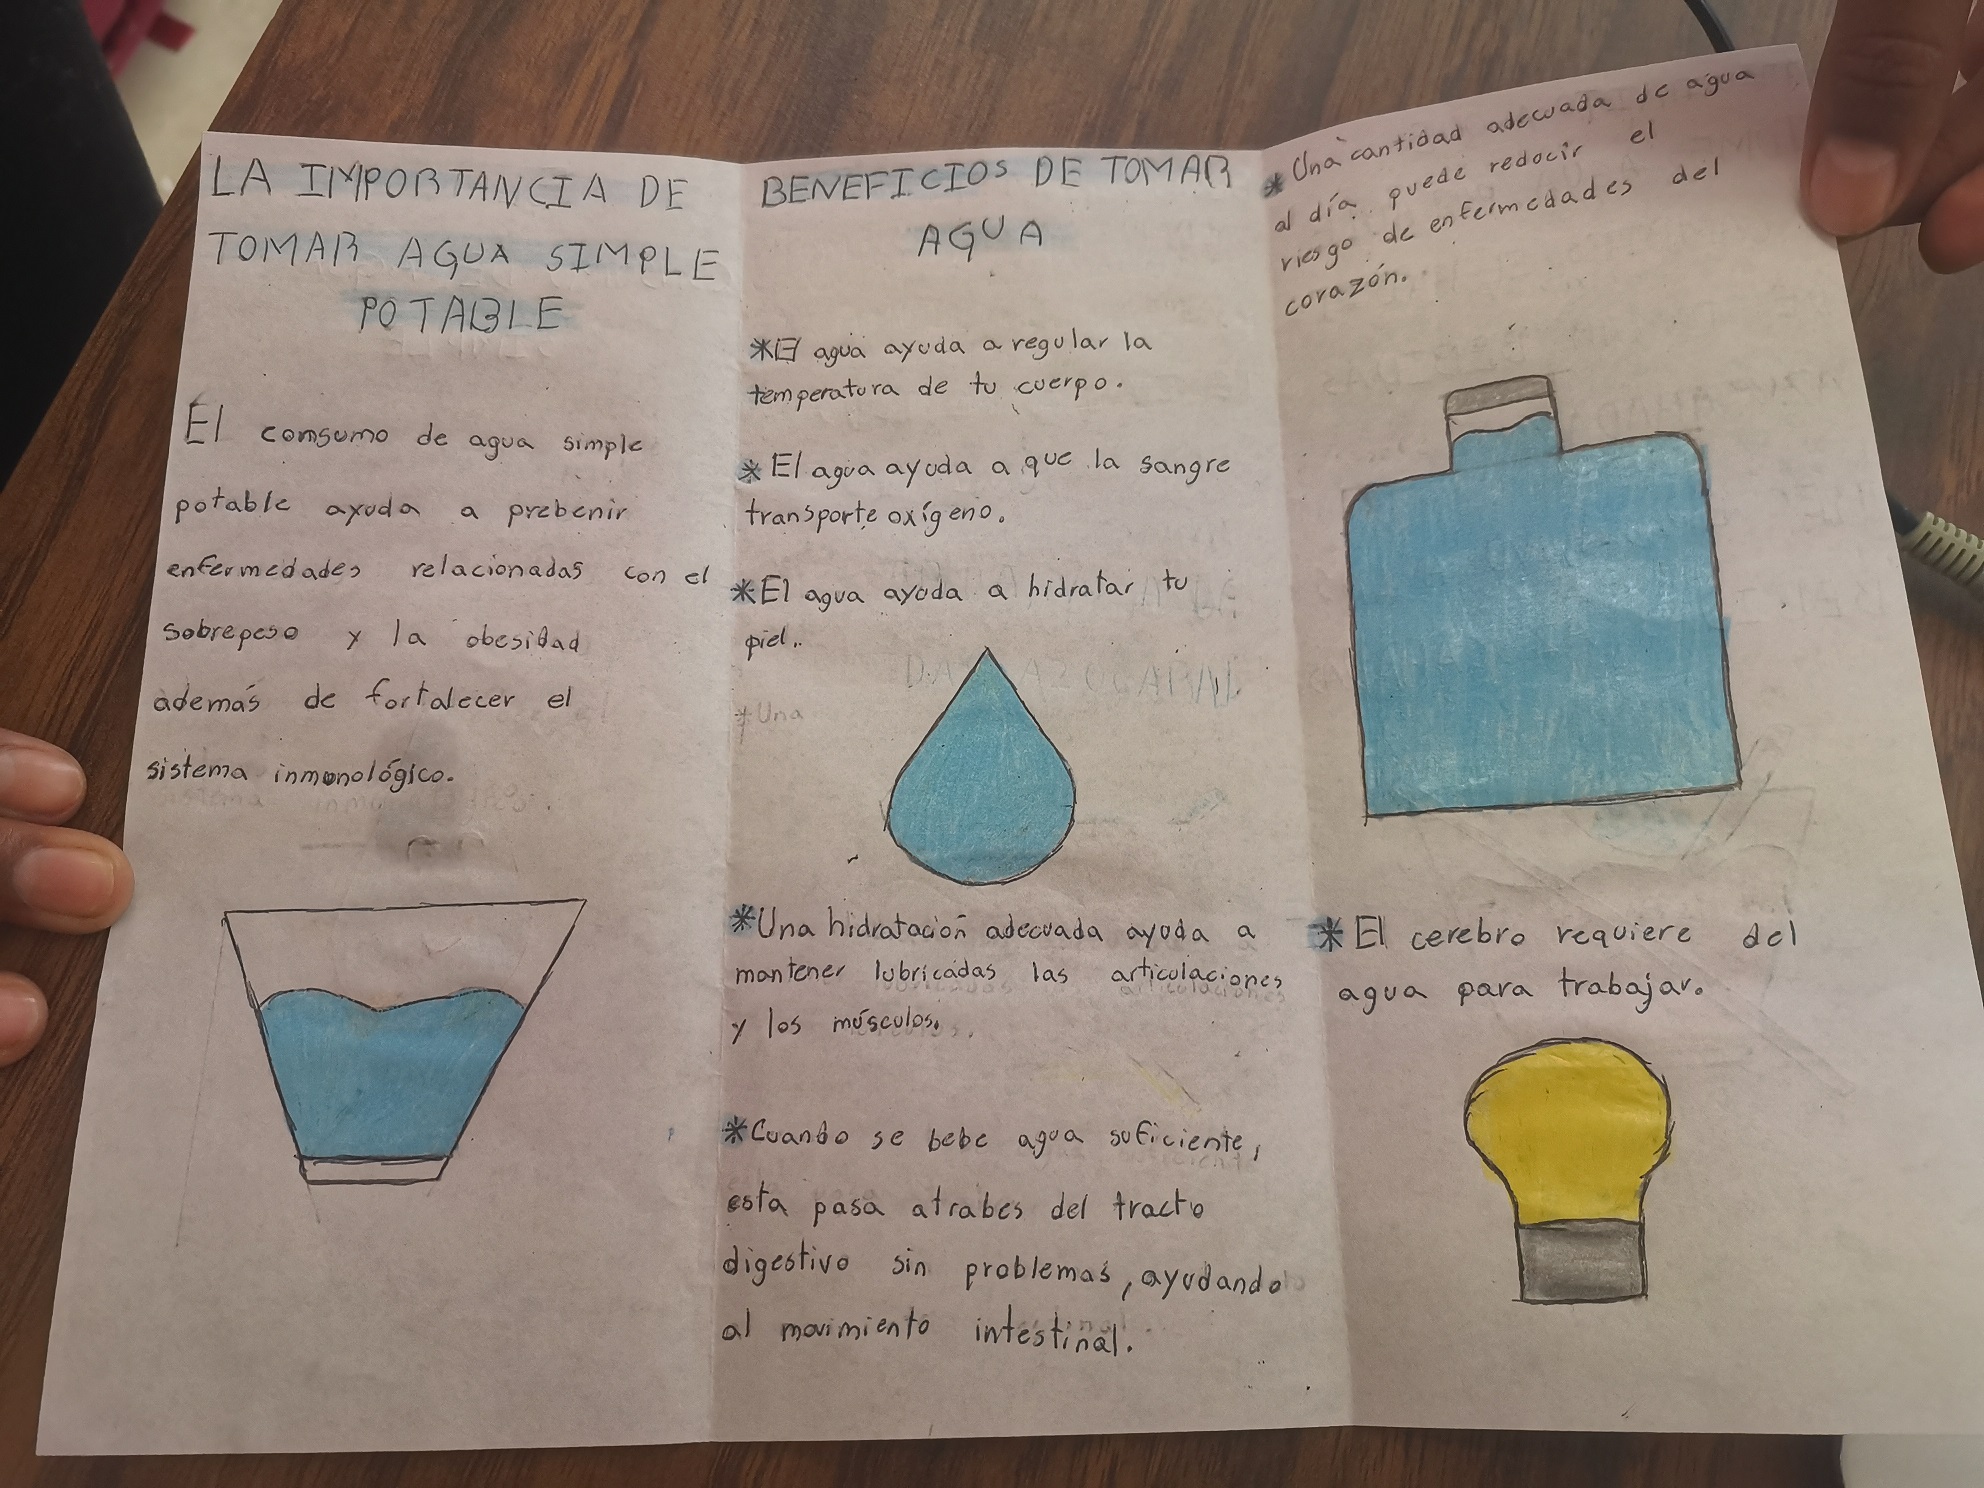 LA IMPORTANCIA DE
TOMAR AGUA SIMPLE
POTABLE
El consumo de agua simple
potable ayuda a prebenir
enfermedades relacionadas con el
sobrepeso y la obesidad
además de fortalecer el
sistema inmonológico.
BENEFICIOS DE TOMAR
AGUA
*El agua ayuda a regular la
temperatura de tu cuerpo.
*El agua ayuda a que la sangre
transporte oxígeno.
*El agua ayuda a hidratar tu
piel..
*Una
*Una hidratación adecuada ayuda a
mantener lubricadas las articulaciones
y los músculos.
*Cuando se bebe agua suficiente,
esta pasa atrabes del tracto
digestivo sin problemas, ayudando
al movimiento intestinal.
*Una cantidad adecuada de agua
al día puede redocir el
riesgo de enfermedades del
corazón.
*El cerebro requiere del
agua para trabajar.